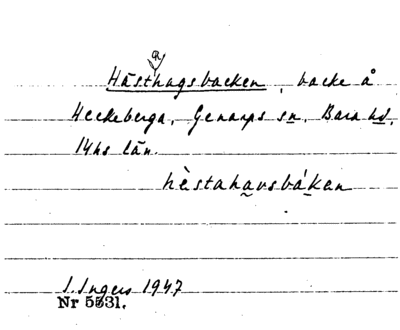 Hästahagsbacken, backe å
Heckeberga, Genarps sn, Bara hd,
Mhs län.
hèstahavsbáken
I. Ingers 1947
Nr 5531.